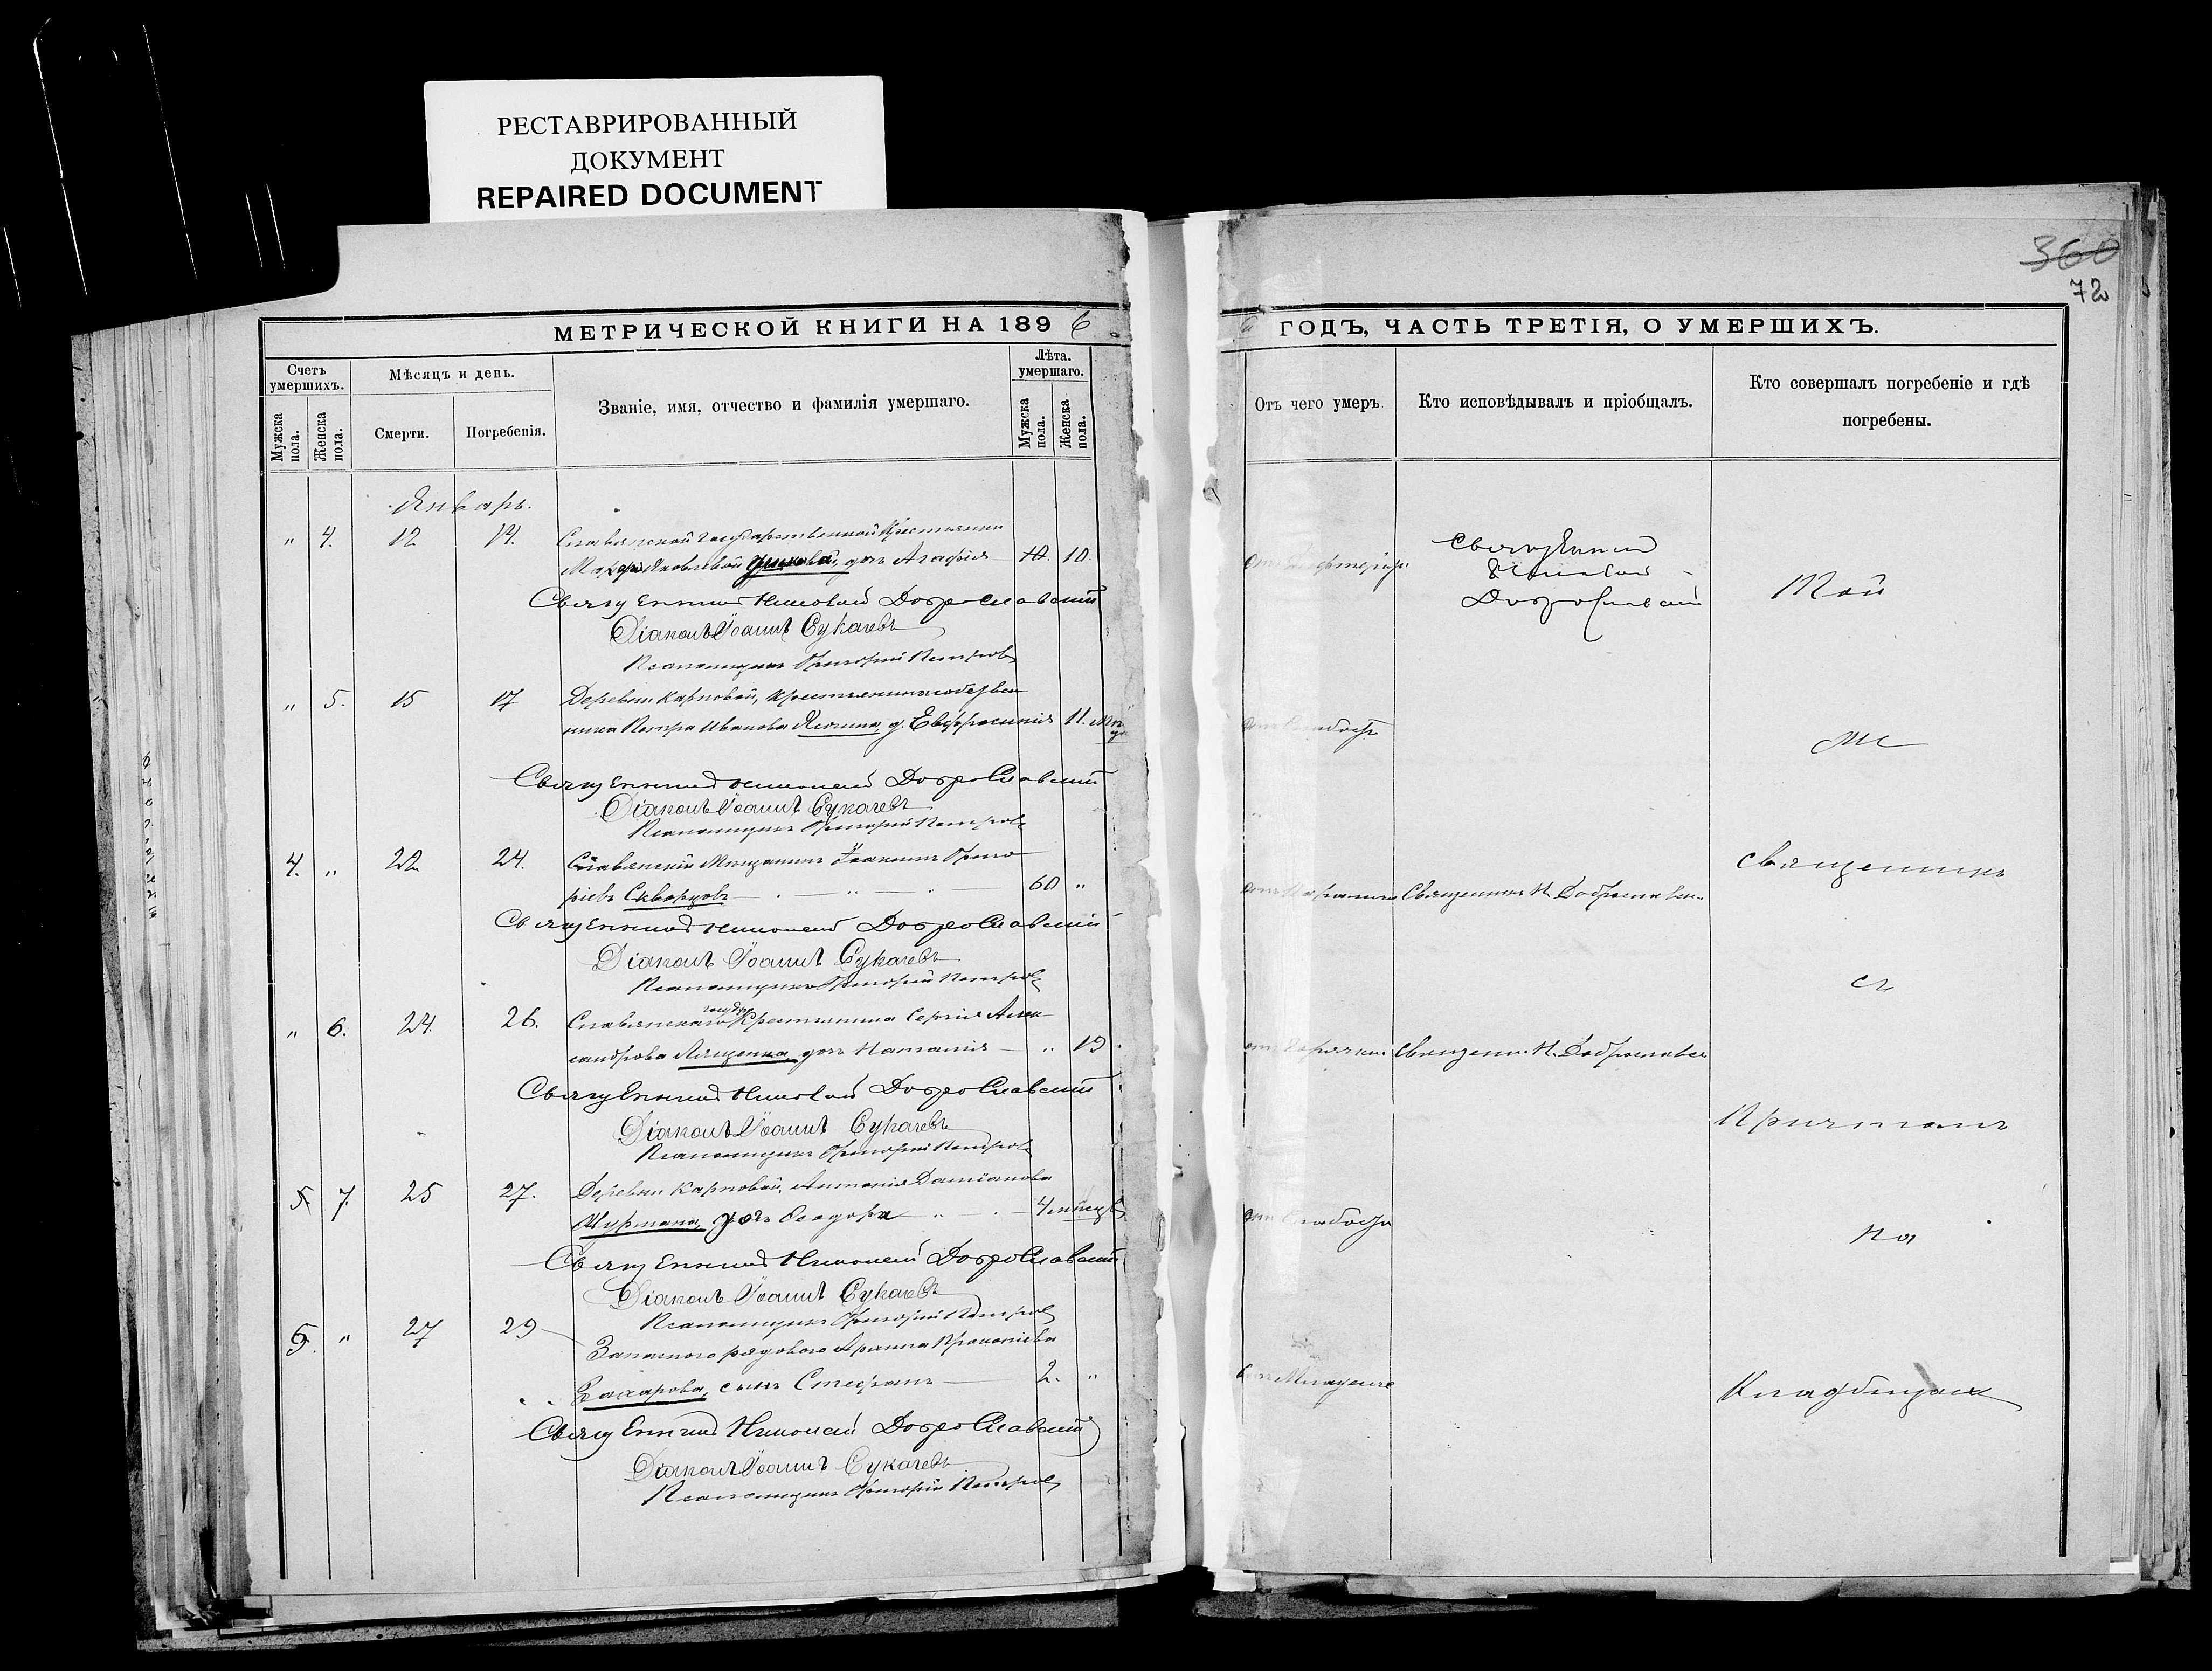 РЕСТАВРИРОВАННЫЙ
ДОКУМЕНТ
REPAIRED DOCUMENT
МЕТРИЧЕСКОЙ КНИГИ НА 1896
Счетъ умершихъ.
Мужска пола.
Женска пола.
Мѣсяцъ и день.
Смерти.
Погребенія.
Званіе, имя, отчество и фамилія умершаго.
Лѣта. умершаго.
Мужска пола.
Женска пола.
Январь.
" 4. 12 14. Славянской Государственной Крестьянки
Яковлевой дочь Агафія 10. 10.
Священникъ Николай Доброславскій
Діаконъ Іоаннъ Сукачевъ
Псаломщикъ Григорій Петровъ
" 5. 15 17 Деревни Карповой, крестьянина собствен
ника Петра Иванова д. Евфросинія 11. м
Священникъ Николай Доброславскій
Діаконъ Іоаннъ Сукачевъ
Псаломщикъ Григорій Петровъ
4. " 22 24. Славянскій Мѣщанинъ Іоакимъ Григо
ріевъ Скварцовъ 60 "
Священникъ Николай Доброславскій
Діаконъ Іоаннъ Сукачевъ
Псаломщикъ Григорій Петровъ
" 6. 24. 26. Славянскаго госуд. Крестьянина Сергія Алек
сандрова Лященка, дочь Наталія " 19.
Священникъ Николай Доброславскій
Діаконъ Іоаннъ Сукачевъ
Псаломщикъ Григорій Петровъ
5 7. 25 27. Деревни Карповой, Антонія Даміанова
Шурпана, дочь Ѳеодора 4 мѣсяц
Священникъ Николай Доброславскій
Діаконъ Іоаннъ Сукачевъ
Псаломщикъ Григорій Петровъ
5. " 27 29 Запаснаго рядового Прокопіева
Захарова, сынъ Стефанъ 2. "
Священникъ Николай Доброславскій
Діаконъ Іоаннъ Сукачевъ
Псаломщикъ Григорій Петровъ
360
72
ГОДЪ, ЧАСТЬ ТРЕТІЯ, О УМЕРШИХЪ.
Отъ чего умеръ.
Кто исповѣдывалъ и пріобщалъ.
Кто совершалъ погребеніе и гдѣ
погребены.
Священникъ
Николай
Доброславскій
Той
же
Священникъ
Священникъ Н. Доброславск.
съ
Священн. Н. Доброславск
Причтомъ
на
Кладбищах